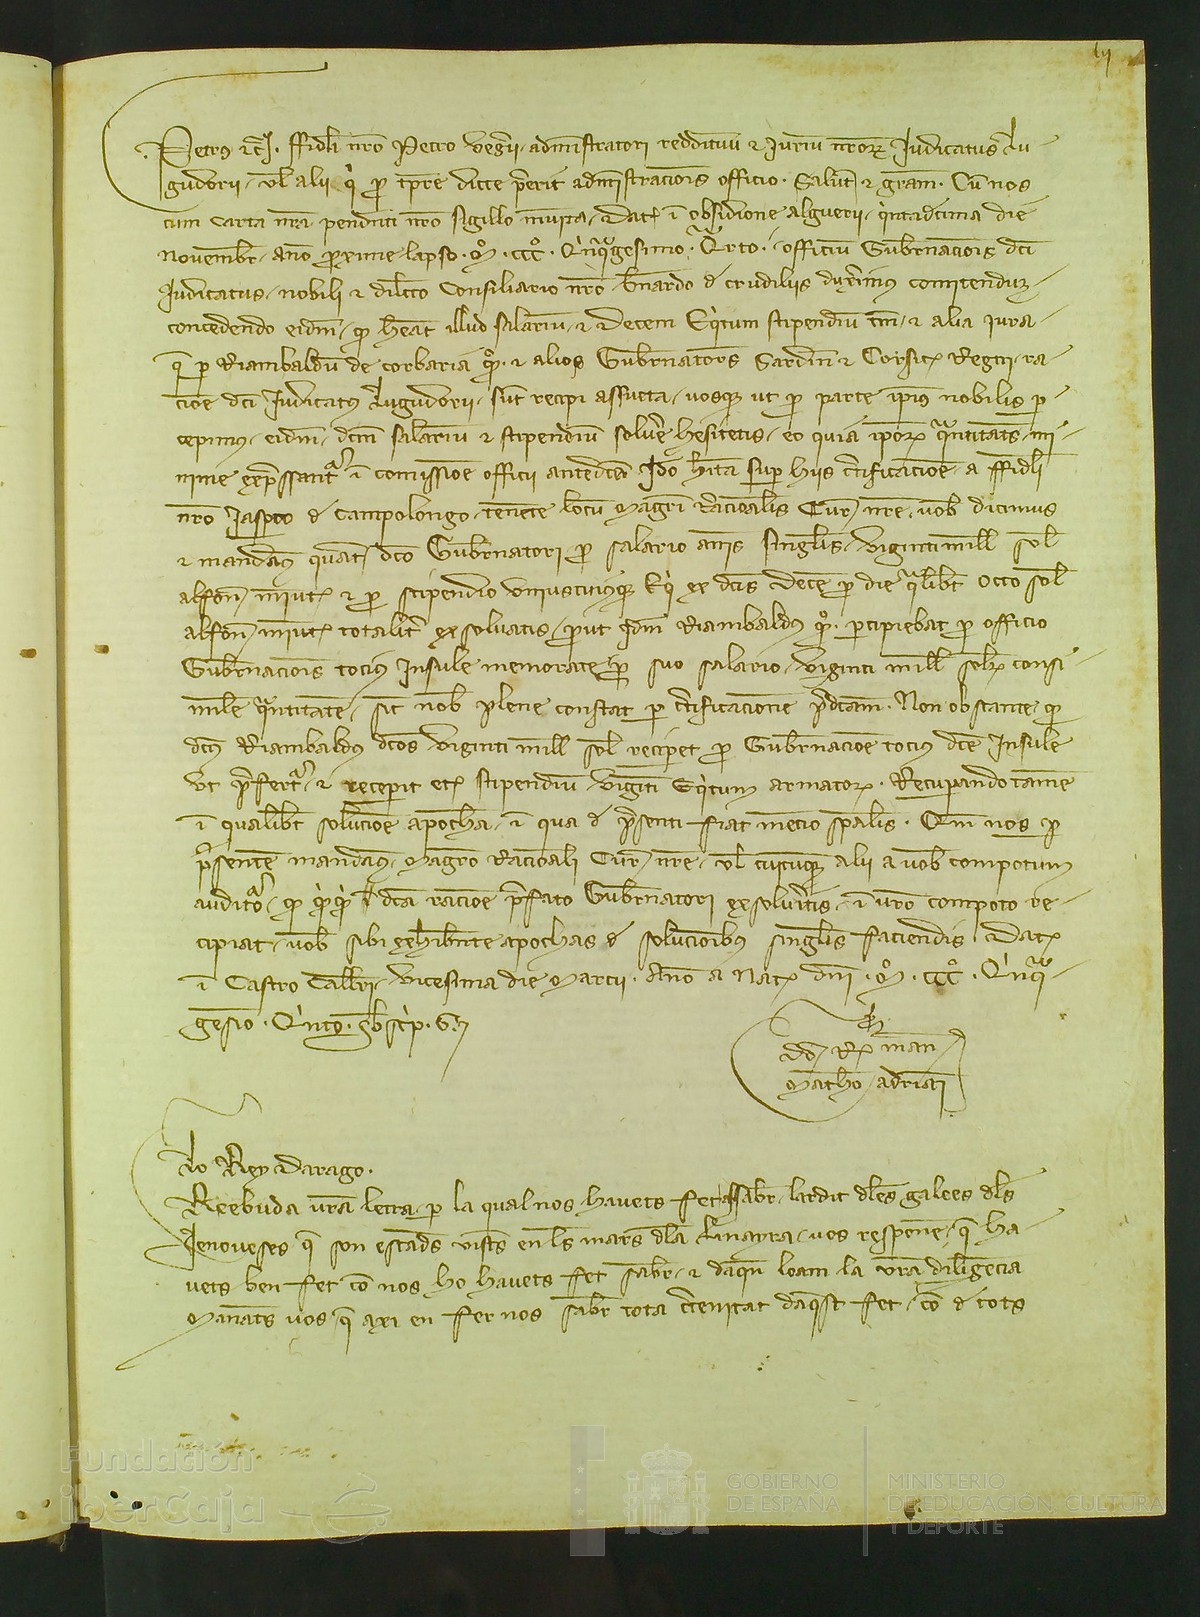 lij
Petrus etc. ffideli nro Petro vegerii administratori reddituum et Jurium nrorum Judicatus Lu-
gudorii vel alii qui pro tempore dicte preerit administracionis officio. Salutem et gram. Cum nos
cum carta nra pendenti nro sigillo munita Dat in obsidione alguerii quintadecima die
Novembr Anno proxime lapso. Mº. CCCº. Quinquagesimo Quarto. officium Gubernacionis dci
Judicatus nobili et dilecto Consiliario nro Bernardo de crudiliis duxerimus comitendum
concedendo eidem quod heat illud salarium et Decem Equitum stipendium cum et alia Jura
que per Riambaldum de corbaria quo. et alios Gubernatores Sardinie et Corsice Regni ra-
cione dci Judicatus Lugudorii sunt recipi assueta vosque ut pro parte ipius nobilis per-
cepimus eidem dcum salarium et stipendium solvere hesitetis eo quia ipor quantitates mi-
nime expressantur in comissione officii antedicti Ideo hita super hiis certificacione a ffideli
nro Jasperto de campolongo tenente locum Magri Racionalis Curie nre vob dicimus
et mandamus quatenus dco Gubernatori pro salario annis singulis viginti mill sol
alfons minutor et pro stipendio uniuscuiusque Equi ex dcis Decem pro die qualibet octo sol
alfons minutor totaliter exsolvatis prout idem Riambaldus quo. percipiebat pro officio
Gubernacionis tocius Insule memorate pro suo salario viginti mill solidor consi-
milem quantitatem sicut nob plene constat per certificacionem predictam. Non obstante quod
dcus Riambaldus dcos viginti mill sol reciperet pro Gubernacione tocius dce Insule
ut prefertur et receperit etc stipendium viginti Equitum armator. Recuperando tamen
in qualibet solucione apocham in qua de presenti fiat mencio spalis. Quoniam nos per
presentem mandamus Magro Racionali Curie nre vel cuicumque alii a vob compotum
audituro quod quicquid dca racione prefato Gubernatori exsolveritis in vro compoto re-
cipiat vob sibi exhibente apochas de solucionibus singulis faciendis. Dat
in Castro Callari vicesima die Marcii. Anno a Nat dni. Mº. CCCº. Quinqua-
gesimo. Quinto. Subscrip. G.
Dns Rex man
Matheo adriani
Lo Rey Darago.
Reebuda vra letra per la qual nos havets fet assaber lardit deles galees dels
Jenoveses que son estades vistes en les mars dela Linayra vos responem que ha-
vets ben fet com nos ho havets fet saber et daquen loam la vra diligencia
Manants vos que axi en fer nos saber tota certenitat daquest fet com de tots
Fundación
iberCaja
GOBIERNO
DE ESPAÑA
MINISTERIO
DE EDUCACIÓN, CULTURA
Y DEPORTE